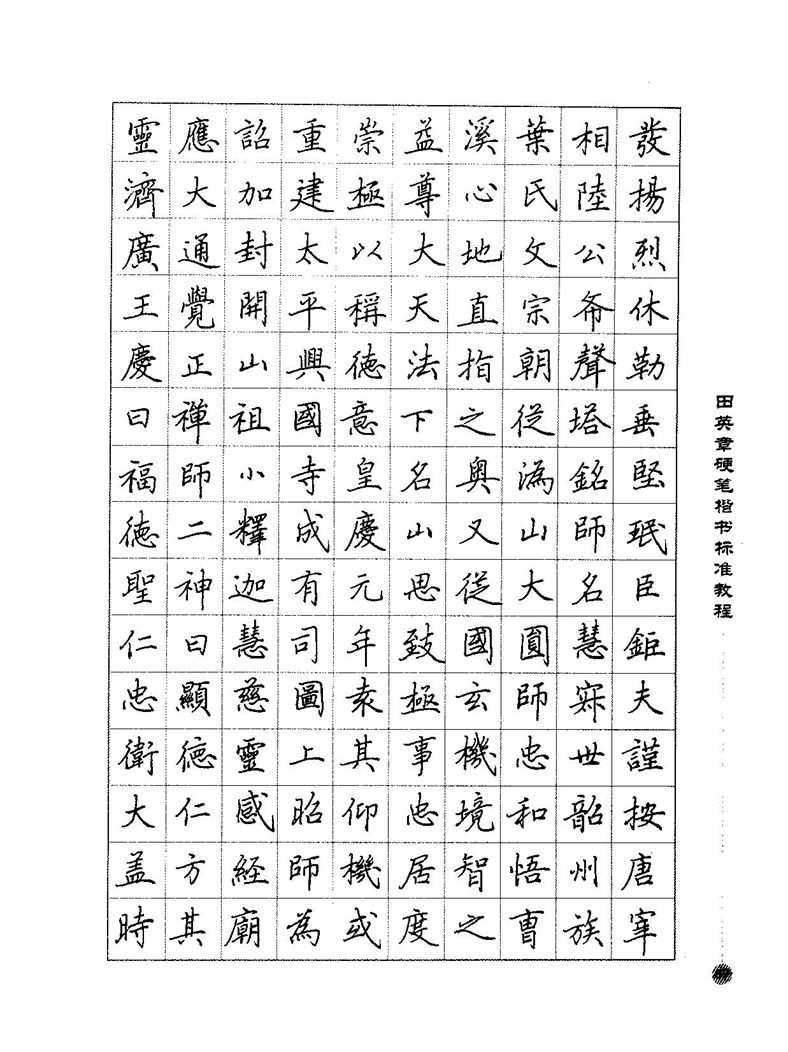 發揚烈休勒垂堅珉臣鉅夫謹按唐宰
相陸公希聲塔銘師名慧寂世韶州族
葉氏文宗朝從溈山大圓師忠和悟曹
溪心地直指之奧又從國玄機境智之
益尊大天法下名山思致極事忠居度
崇極以稱德意皇慶元年袁其仰機或
重建太平興國寺成有司圖上昭師為
詔加封開山祖小釋迦慧慈靈感經廟
應大通覺正禪師二神曰顯德仁方其
靈濟廣王慶曰福德聖仁忠衛大蓋時
田英章硬笔楷书标准教程